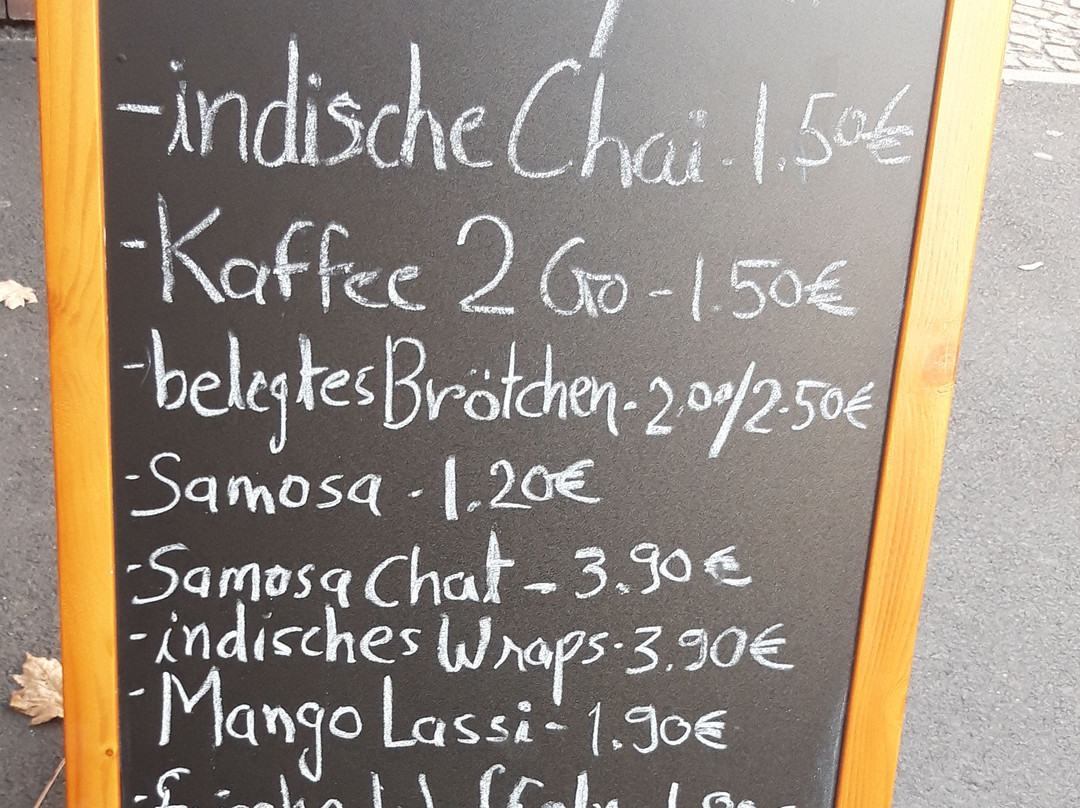 -indische Chai. 1.50€
-Kaffee 2 Go - 1.50€
-belegtes Brötchen. 2.00/2.50€
-Samosa - 1.20€
-Samosa Chat - 3.90€
-indisches Wraps. 3.90€
-Mango Lassi - 1.90€